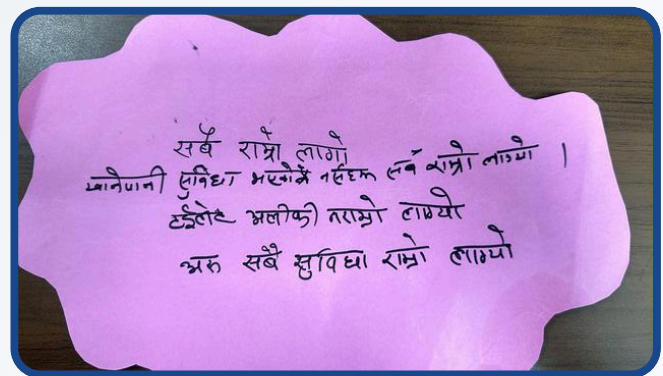 सबै राम्रो लागो
खानेपानी सुविधा भएकोमै नर्सहरू सबै राम्रो लाग्यो ।
टईलेट अलीकी नराम्रो लाग्यो
अरु सबै सुविधा राम्रो लाग्यो